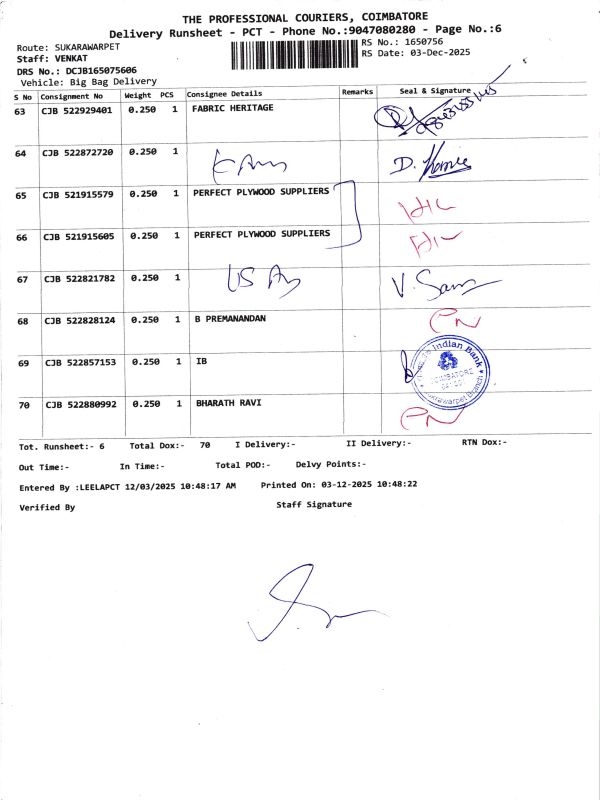 THE PROFESSIONAL COURIERS, COIMBATORE
Delivery Runsheet - PCT - Phone No.:9047080280 - Page No.:6
Route: SUKARAWARPET
RS No.: 1650756
Staff: VENKAT
RS Date: 03-Dec-2025
DRS No.: DCJB165075606
Vehicle: Big Bag Delivery
S No Consignment No Weight PCS Consignee Details Remarks Seal & Signature
63 CJB 522929401 0.250 1 FABRIC HERITAGE
64 CJB 522872720 0.250 1 D.
65 CJB 521915579 0.250 1 PERFECT PLYWOOD SUPPLIERS
66 CJB 521915605 0.250 1 PERFECT PLYWOOD SUPPLIERS
67 CJB 522821782 0.250 1 V.
68 CJB 522828124 0.250 1 B PREMANANDAN
69 CJB 522857153 0.250 1 IB
Indian Bank
COIMBATORE
70 CJB 522880992 0.250 1 BHARATH RAVI
Tot. Runsheet:- 6 Total Dox:- 70 I Delivery:- II Delivery:- RTN Dox:-
Out Time:- In Time:- Total POD:- Delvy Points:-
Entered By :LEELAPCT 12/03/2025 10:48:17 AM Printed On: 03-12-2025 10:48:22
Verified By Staff Signature